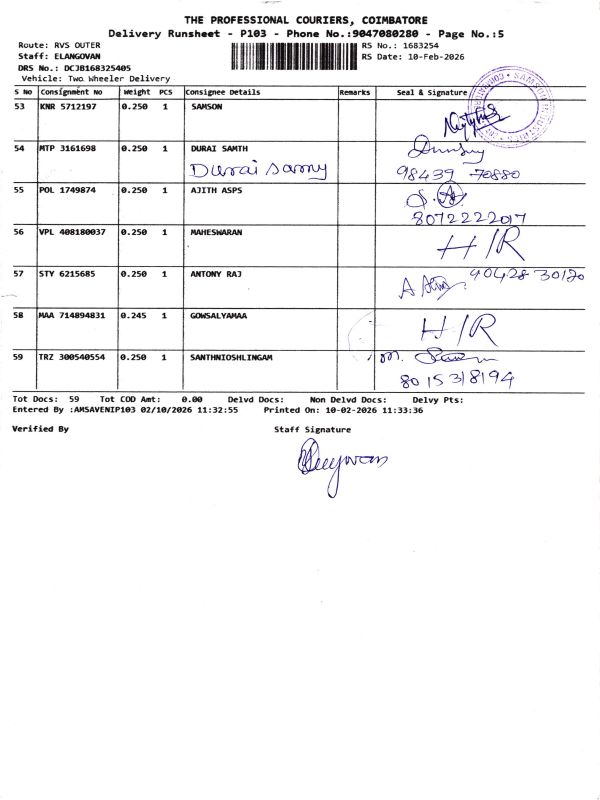 THE PROFESSIONAL COURIERS, COIMBATORE
Delivery Runsheet - P103 - Phone No.:9047080280 - Page No.:5
Route: RVS OUTER
Staff: ELANGOVAN
DRS No.: DCJB168325405
Vehicle: Two Wheeler Delivery
RS No.: 1683254
RS Date: 10-Feb-2026
S No Consignment No Weight PCS Consignee Details Remarks Seal & Signature
53 KNR 5712197 0.250 1 SAMSON
54 MTP 3161698 0.250 1 DURAI SAMTH
Durai samy 98439 70880
55 POL 1749874 0.250 1 AJITH ASPS
8072222017
56 VPL 408180037 0.250 1 MAHESWARAN H/R
57 STY 6215685 0.250 1 ANTONY RAJ 90428 30120
58 MAA 714894831 0.245 1 GOWSALYAMAA H/R
59 TRZ 300540554 0.250 1 SANTHNIOSHLINGAM
8015318194
Tot Docs: 59 Tot COD Amt: 0.00 Delvd Docs: Non Delvd Docs: Delvy Pts:
Entered By :AMSAVENIP103 02/10/2026 11:32:55 Printed On: 10-02-2026 11:33:36
Verified By Staff Signature